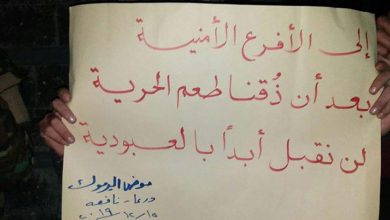 إلى الأفرع الأمنية
بعد أن ذُقنا طعم الحرية
لن نقبل أبداً بالعبودية
حوض اليرموك
درعا - نافعه
٢٠١٩/١٢/١٥